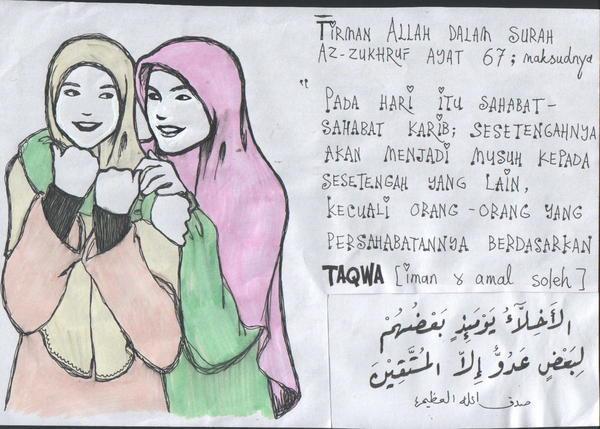 Firman ALLAH DALAM SURAH
AZ-ZUKHRUF AYAT 67; maksudnya
"PADA HARI ITU SAHABAT-
SAHABAT KARIB; SESETENGAHNYA
AKAN MENJADI MUSUH KEPADA
SESETENGAH YANG LAIN,
KECUALI ORANG-ORANG YANG
PERSAHABATANNYA BERDASARKAN
TAQWA [iman & amal soleh]
الأَخِلَّآءُ يَوْمَئِذٍ بَعْضُهُمْ
لِبَعْضٍ عَدُوٌّ إِلاَّ المُتَّقِيْنَ
صدق الله العظيم